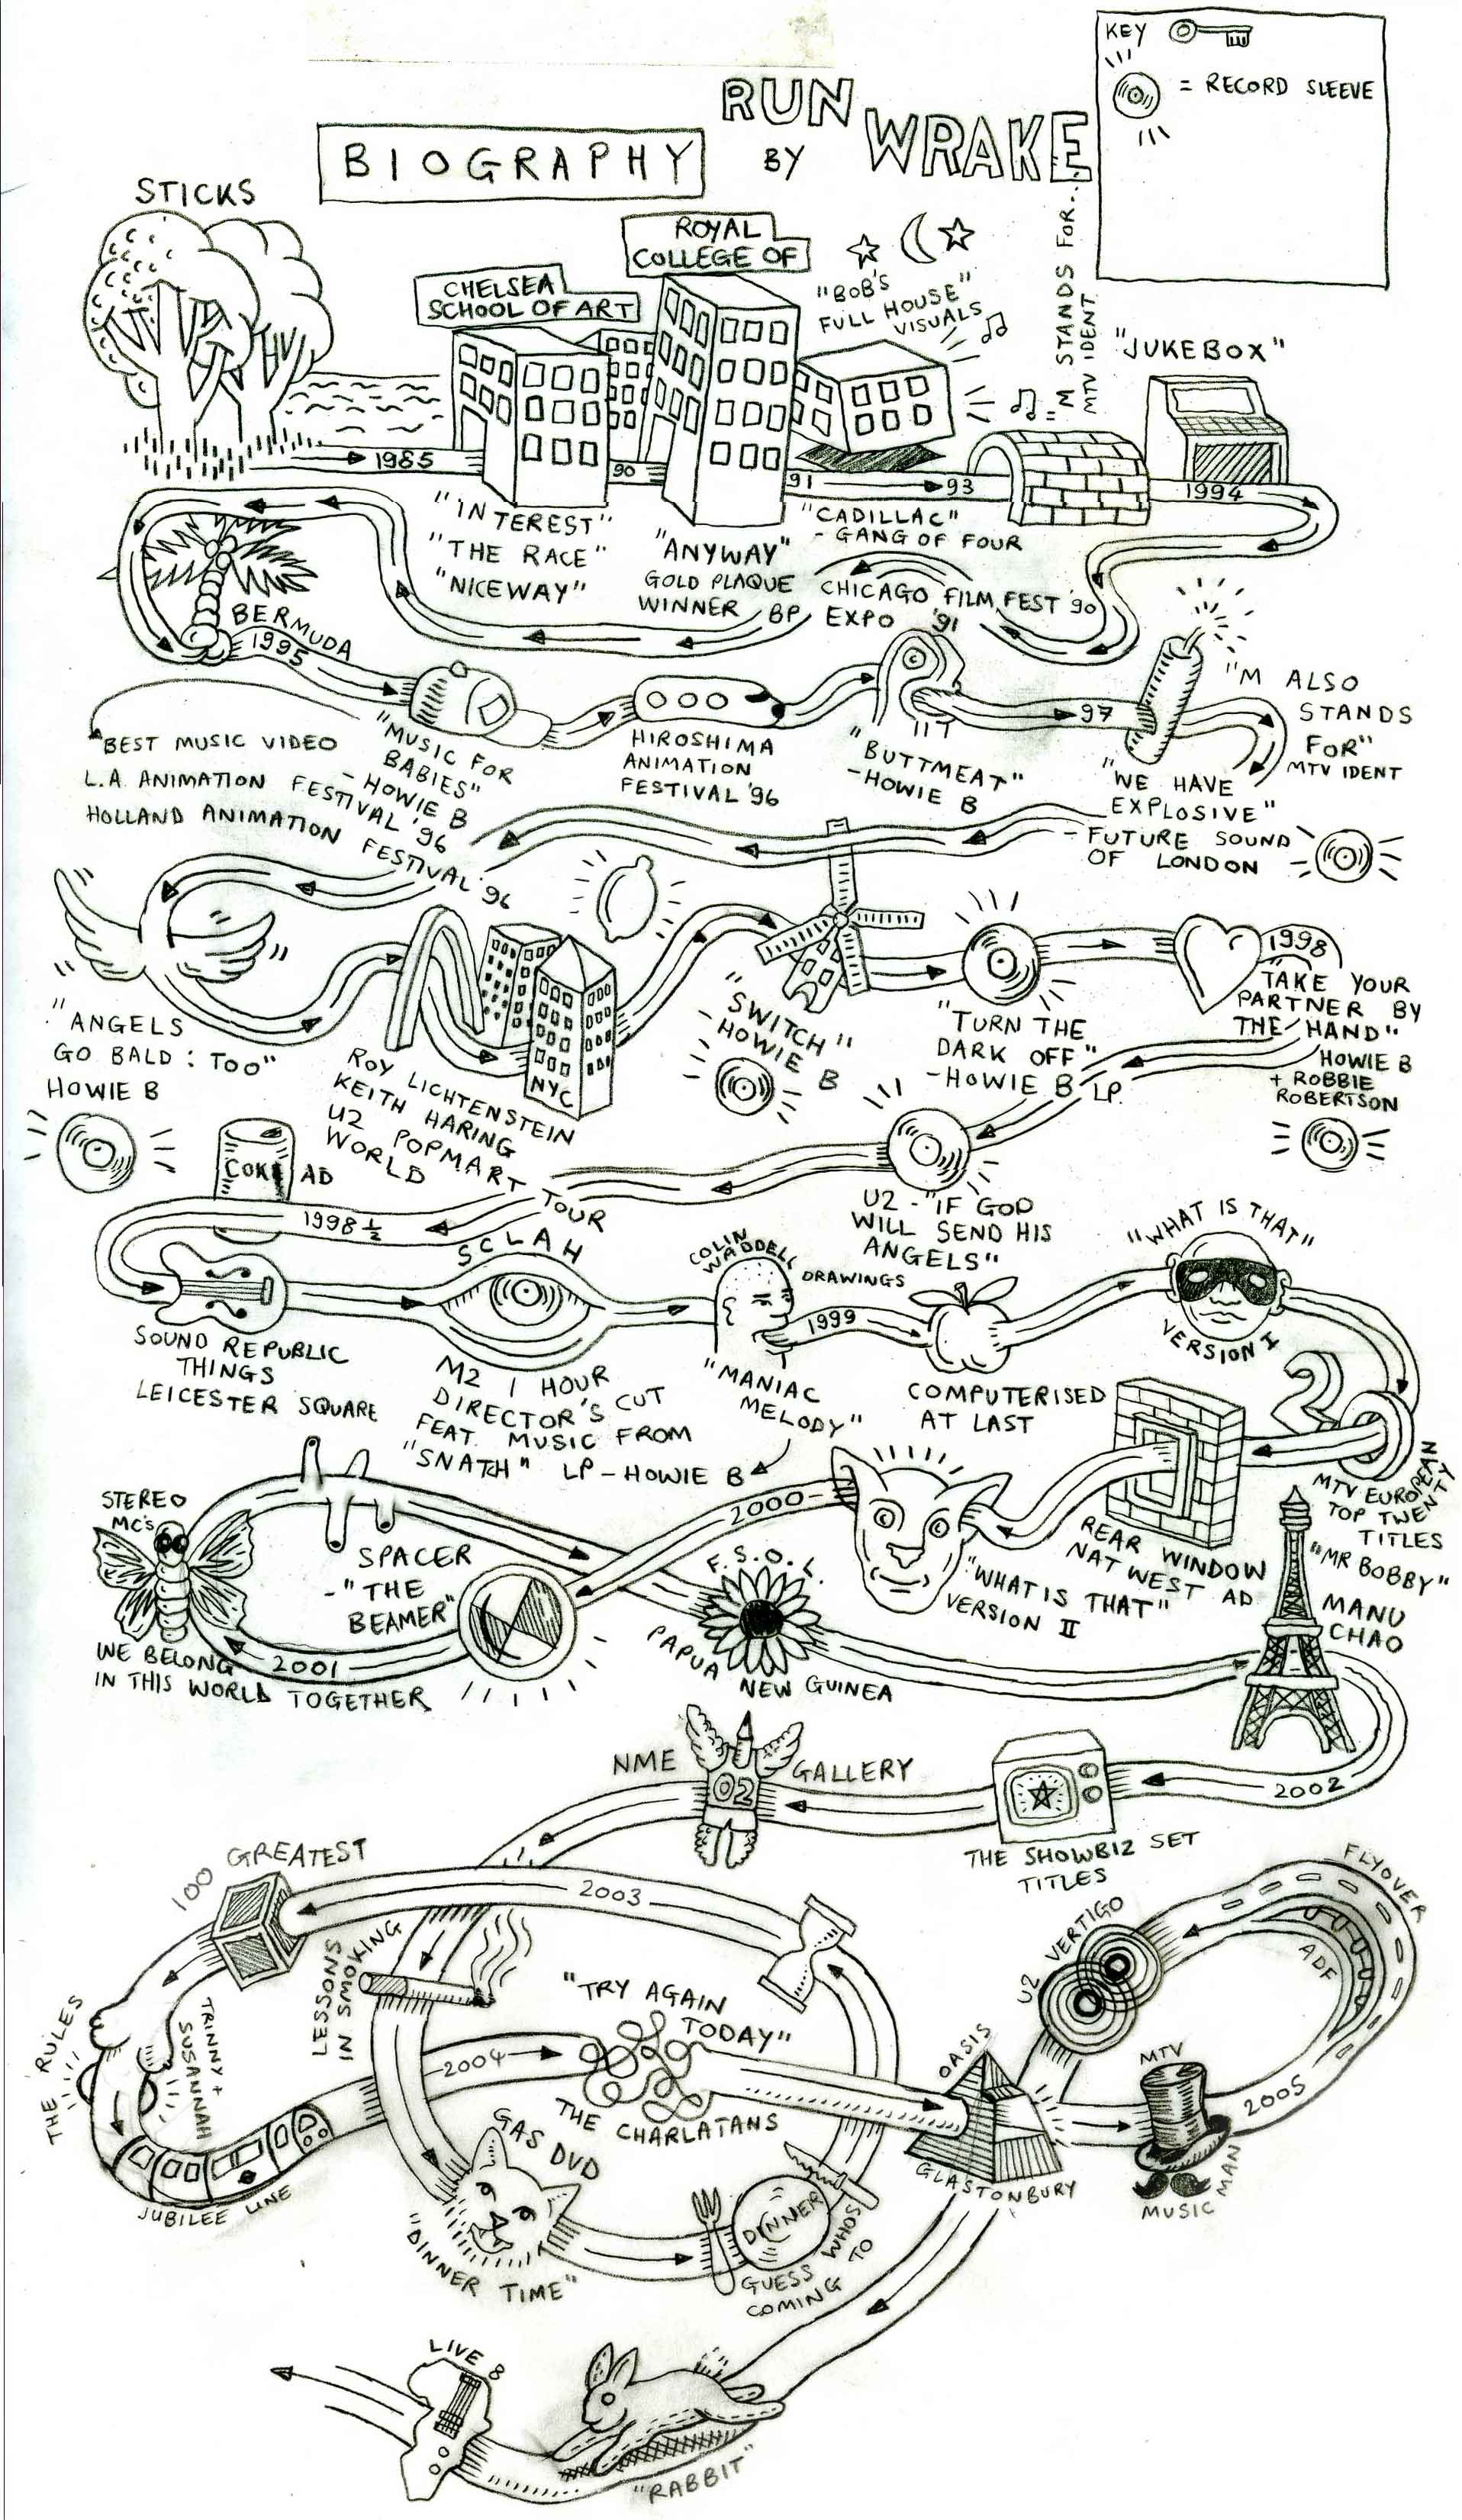 KEY
= RECORD SLEEVE
RUN
WRAKE
BIOGRAPHY
BY
STICKS
ROYAL
COLLEGE OF
CHELSEA
SCHOOL OF ART
"BOB'S
FULL HOUSE"
VISUALS
"M STANDS FOR...
MTV IDENT
"JUKEBOX"
1985
90
91
93
1994
"INTEREST"
"THE RACE"
"NICEWAY"
"ANYWAY"
GOLD PLAQUE
WINNER
CHICAGO FILM FEST '90
BP EXPO '91
"CADILLAC"
- GANG OF FOUR
BERMUDA
1995
97
"M ALSO
STANDS
FOR"
MTV IDENT
"BEST MUSIC VIDEO
L.A. ANIMATION FESTIVAL '96
HOLLAND ANIMATION FESTIVAL '96
"MUSIC FOR
BABIES"
- HOWIE B
HIROSHIMA
ANIMATION
FESTIVAL '96
"BUTTMEAT"
- HOWIE B
"WE HAVE
EXPLOSIVE"
- FUTURE SOUND
OF LONDON
"ANGELS
GO BALD: TOO"
HOWIE B
NYC
ROY LICHTENSTEIN
KEITH HARING
U2 POPMART TOUR
WORLD
"SWITCH"
- HOWIE B
"TURN THE
DARK OFF"
- HOWIE B LP.
1998
"TAKE YOUR
PARTNER BY
THE HAND"
HOWIE B
+ ROBBIE
ROBERTSON
COKE AD
1998 1/2
U2 - "IF GOD
WILL SEND HIS
ANGELS"
SOUND REPUBLIC
THINGS
LEICESTER SQUARE
SCLAH
M2 1 HOUR
DIRECTOR'S CUT
FEAT. MUSIC FROM
"SNATCH" LP - HOWIE B
COLIN
WADDELL
DRAWINGS
1999
"MANIAC
MELODY"
COMPUTERISED
AT LAST
"WHAT IS THAT"
VERSION I
2
MTV EUROPEAN
TOP TWENTY
TITLES
REAR WINDOW
NAT WEST AD
"WHAT IS THAT"
VERSION II
2000
STEREO
MC'S
WE BELONG
IN THIS WORLD TOGETHER
2001
SPACER
- "THE
BEAMER"
F.S.O.L.
PAPUA NEW GUINEA
"MR BOBBY"
MANU
CHAO
2002
THE SHOWBIZ SET
TITLES
NME 02 GALLERY
100 GREATEST
2003
LESSONS
IN SMOKING
THE RULES
TRINNY +
SUSANNAH
JUBILEE LINE
2004
"TRY AGAIN
TODAY"
THE CHARLATANS
GAS DVD
"DINNER TIME"
DINNER
GUESS WHOS
COMING TO
OASIS
GLASTONBURY
U2 VERTIGO
FLYOVER
ADF
2005
MTV
MUSIC MAN
LIVE 8
"RABBIT"